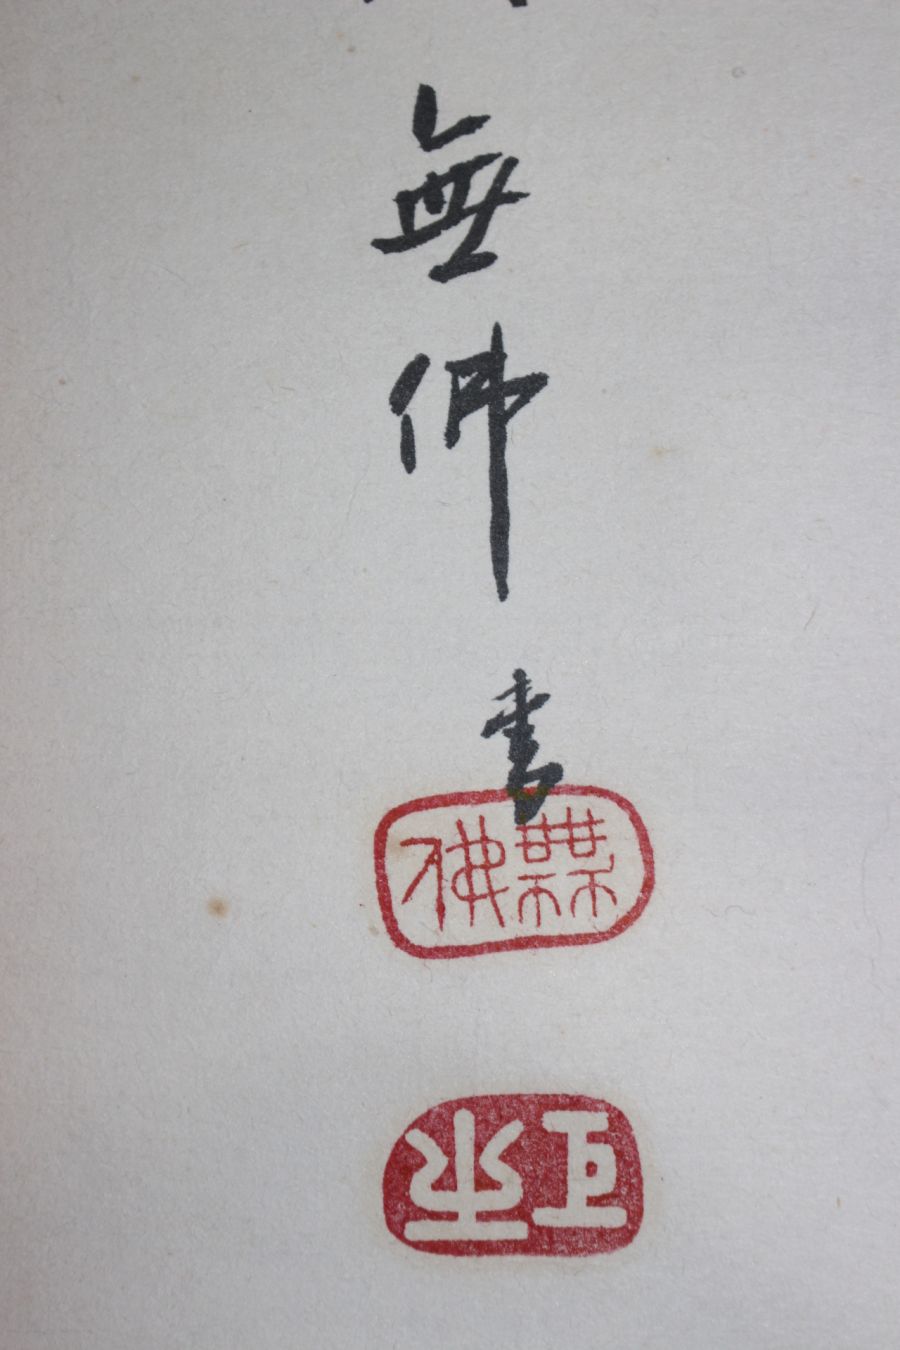 無佛書
無佛